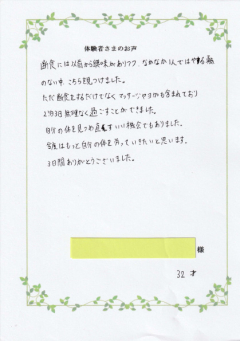 体験者さまのお声
断食には以前から興味がありつつ なかなか1人ではやる勇気
のない中 こちらを見つけました。
ただ断食をするだけでなく マッサージやヨガも含まれており
2泊3日無理なく過ごすことができました。
自分の体を見つめ直すいい機会でもありました。
今後はもっと自分の体を労っていきたいと思います。
3日間ありがとうございました。
様
32 才